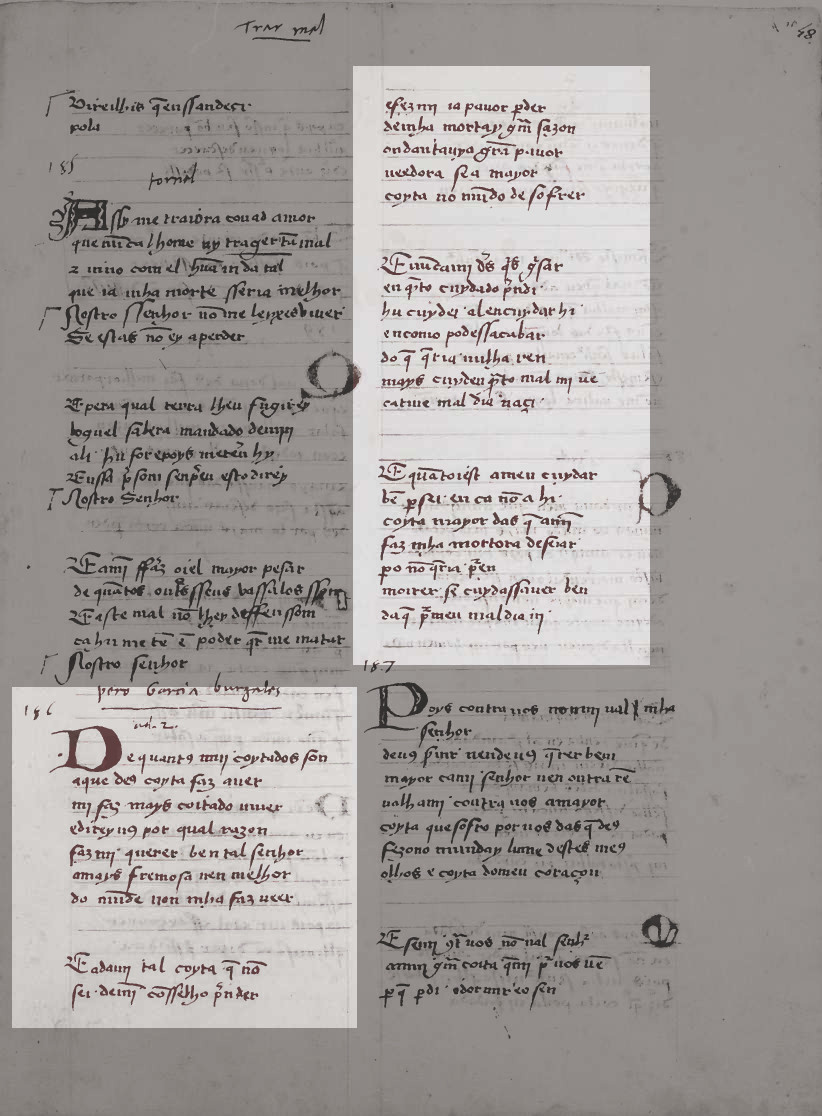 Trar mal
58
Vireilhis q̄ enssandeçi
pola
185
tornel
Assy me traiora coudad amor
que nūca lhome uy trager tā mal
z uiuo com el hūa uida tal
que ia mha morte sseria melhor
Nostro ssenhor nō me leyxes uiuer
Se estas nō ey a perder
E pera qual terra lheu fugirey
loguel sabera mandado de mī
ali hu for e poys me teū hy
Eu ssā p̄som senp̄ eu esto direy
Nostro Senhor
E a mī ffaz oiel mayor pesar
de quātos outs̄ sseus vassalos ssom
E aste mal nō lhey deffenssom
ca hu me tē ē poder q̄r me matar
Nostro senhor
pero Garcia burgales
186
De quantꝯ mī coytados son
a que deꝯ coyta faz auer
mi faz mays coitado uiuer
e direy uꝯ por qual razon
faz mi querer ben tal senhor
a mays fremosa nen melhor
do mūde non mha faz ueer
E a da mi tal coyta q̄ nō
sei de mī cōsselho p̄nder
e fez mi ia pauor p̄der
de mha mort ay gm̄ sazon
onda uya grā pauor
ue ed ora se a mayor
coyta nō mūdo de sofrer
E iuda mi ds̄ q̄s g'sar
en q̄to cuydado p̄ndi
hu cuydei al en cuydar hi
en como podess acabar
do q̄ q̄ria nulha ren
mays cuyden p̄to mal mi uē
catiue mal dia naçi
E quāto ist a meu cuydar
bē p̄ sei eu ca nō a hi
coyta mayor das q̄ a mī
faz mha mort ora deseiar
p̄o nō q̄ria p̄en
morrer se cuydass auer ben
da q̄ p̄ meu mal dia ui
187
Poys contra uos non mi ual mha
senhor
deuꝯ s̄uir nen de uꝯ q̄rer bem
mayor ca mī senhor nen outra rē
ualha mi contra uos a mayor
coyta que sofro por uos das q̄ deꝯ
fez ono mund ay lume destes meꝯ
olhos e coyta do meu coraçon
E se mi q̄t uos nō ual senhr
a mui gm̄ coita q̄ mi p̄ uos uē
p̄ q̄ p̄di o dormir e o sen